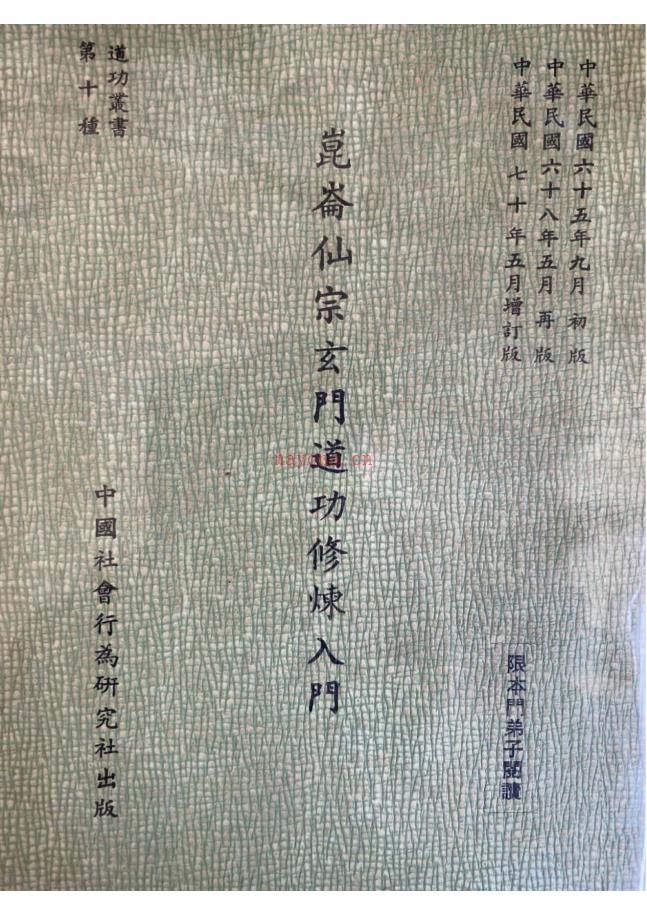 中華民國六十五年九月初版
中華民國六十八年五月再版
中華民國七十年五月增訂版
限本門弟子閱讀
崑崙仙宗玄門道功修煉入門
道功叢書
第十種
中國社會行為研究社出版
nayona.cn